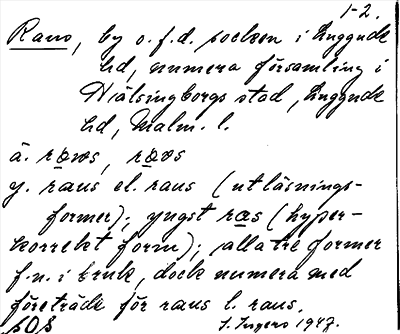 1-2.
Raus, by o. f. d. socken i Luggude
hd, numera församling i
Hälsingborgs stad, Luggude
hd, Malm. l.
ä. raws, raws
y. raus el. raus (utläsnings-
former); yngst ras (hyper-
korrekt form); alla tre former
f.n. i bruk, dock numera med
företräde för raus l. raus.
SOS I. Ingers 1947.